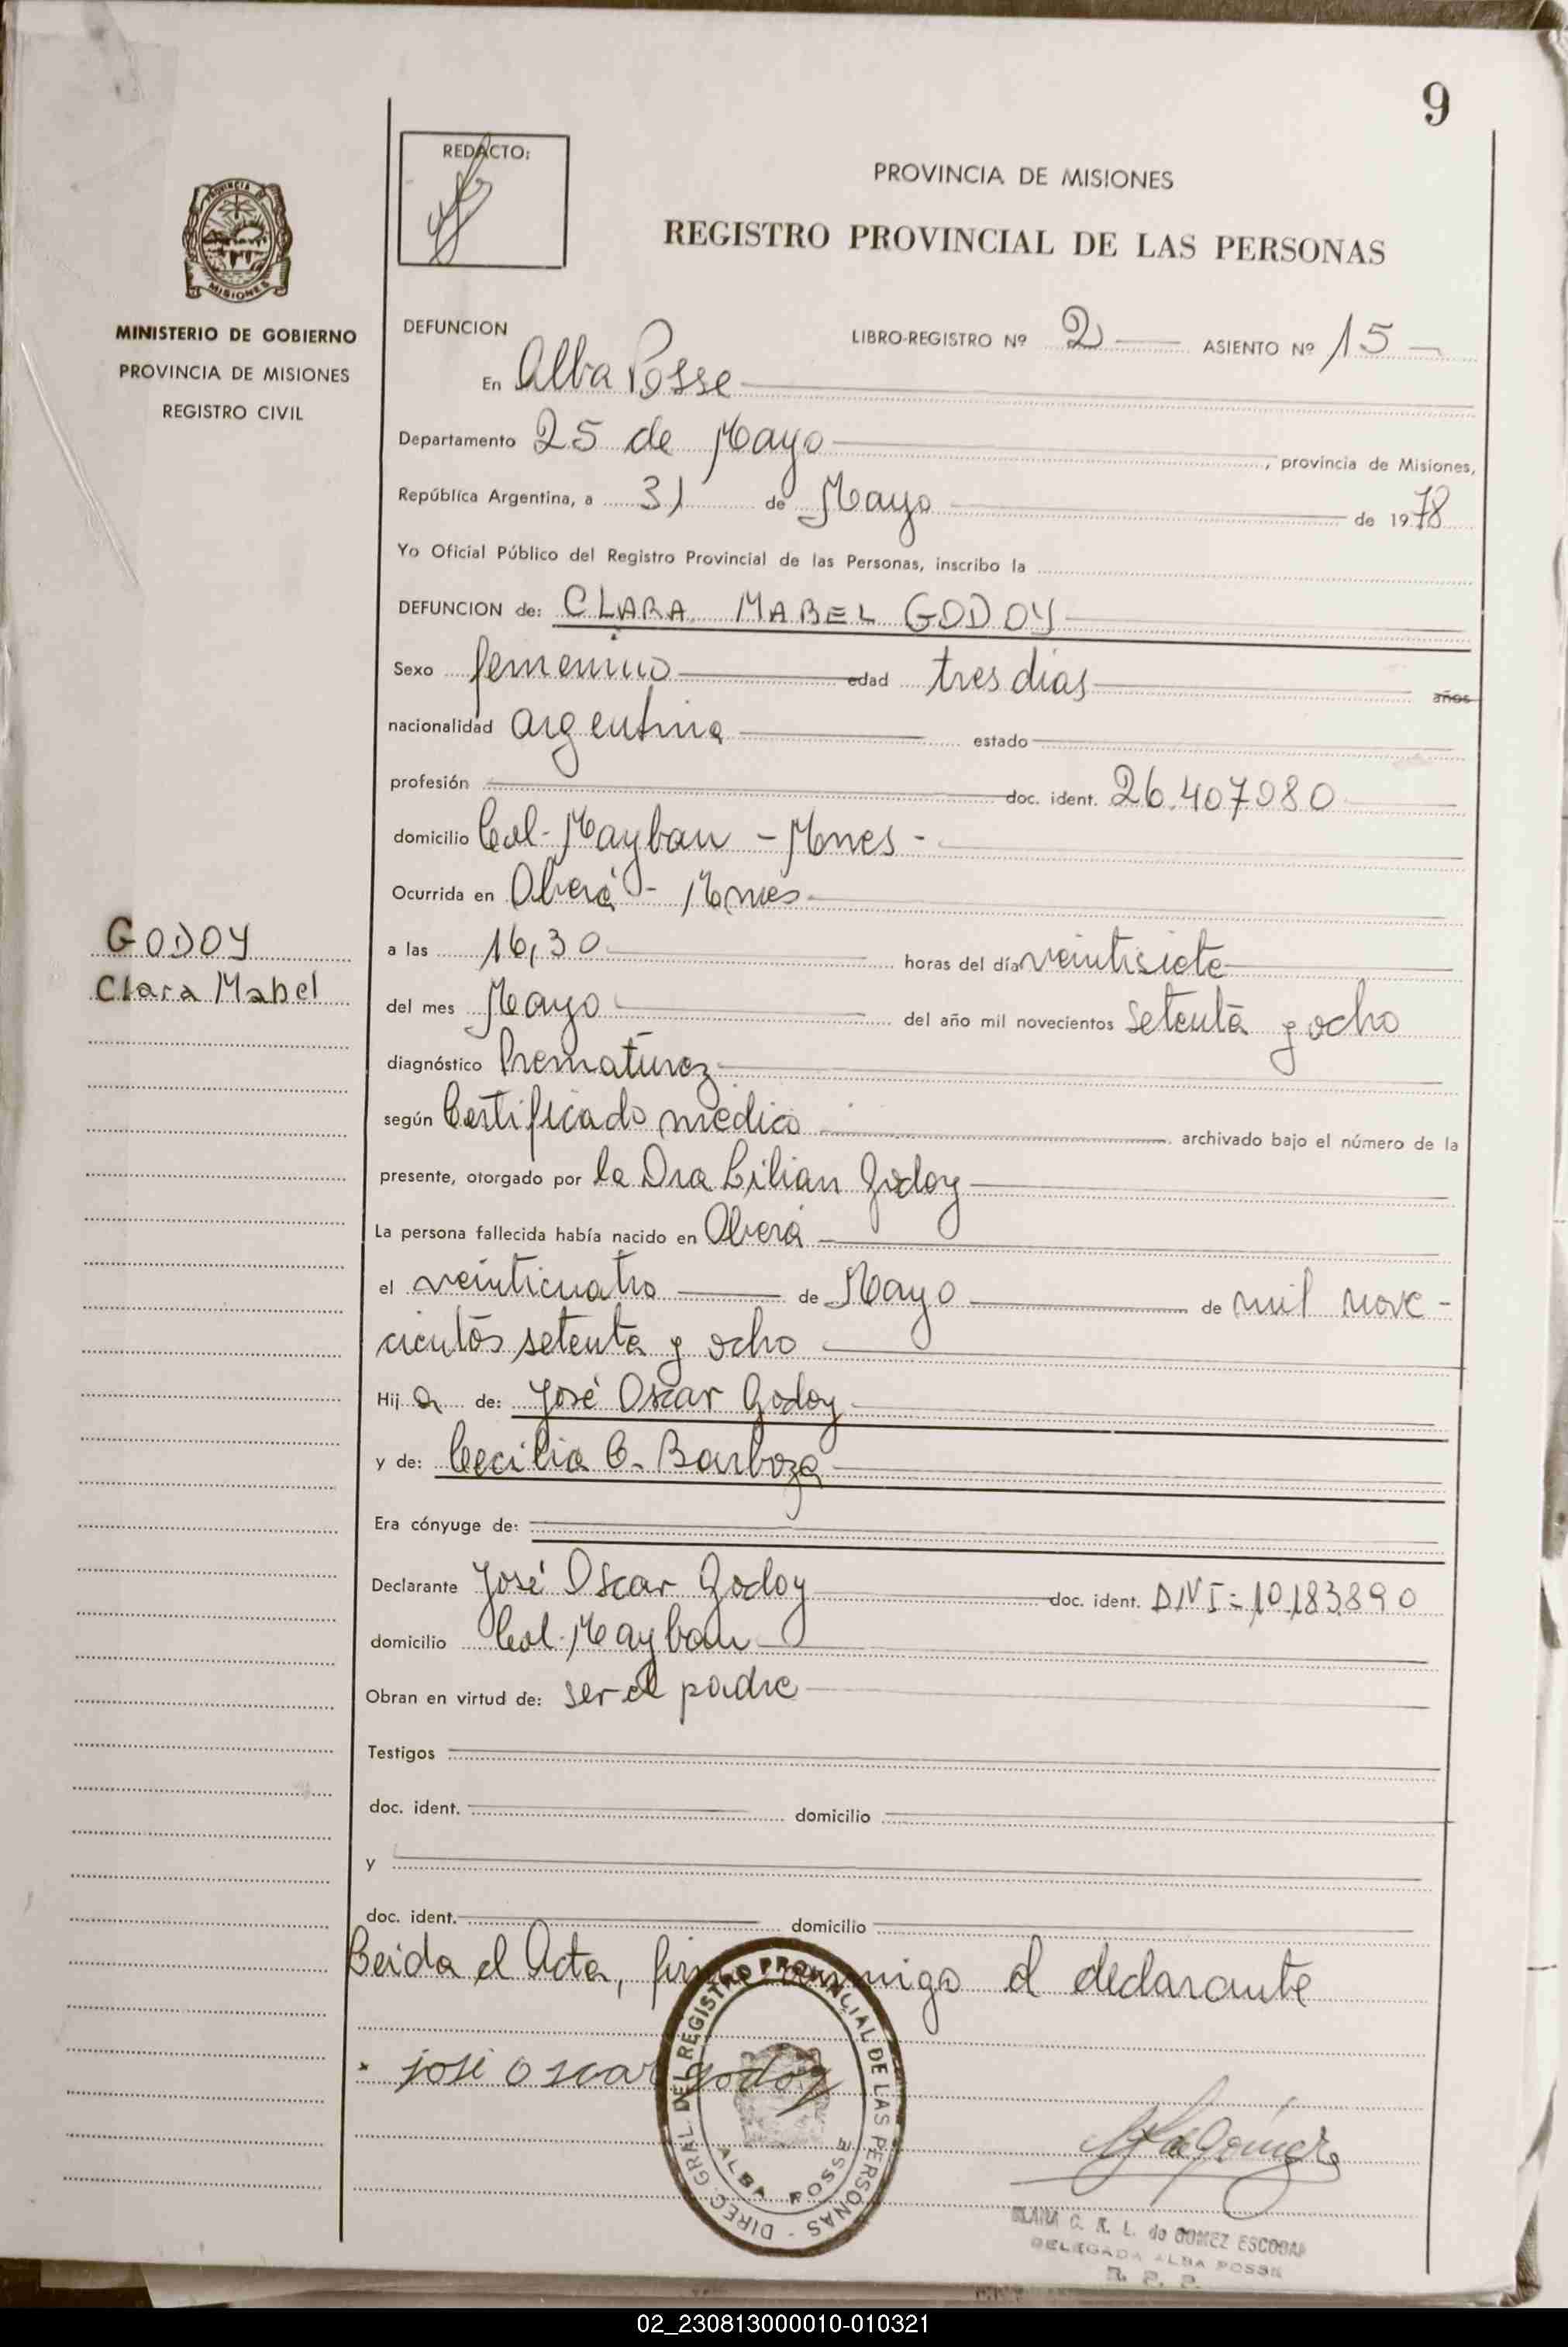 9
REDACTO:
PROVINCIA DE MISIONES
REGISTRO PROVINCIAL DE LAS PERSONAS
PROVINCIA DE
MISIONES
MINISTERIO DE GOBIERNO
PROVINCIA DE MISIONES
REGISTRO CIVIL
DEFUNCION LIBRO-REGISTRO Nº 2 ASIENTO Nº 15
En Alba Posse
Departamento 25 de Mayo, provincia de Misiones,
República Argentina, a 31 de Mayo de 1978
Yo Oficial Público del Registro Provincial de las Personas, inscribo la
DEFUNCION de: CLARA MABEL GODOY
Sexo femenino edad tres días años
nacionalidad argentina estado
profesión doc. ident. 26.407080
domicilio Col. Mayban - Mnes -
Ocurrida en Oberá - Mnes
GODOY
Clara Mabel
a las 16,30 horas del día veintisiete
del mes Mayo del año mil novecientos setenta y ocho
diagnóstico Prematurez
según Certificado médico archivado bajo el número de la
presente, otorgado por la Dra Lilian Godoy
La persona fallecida había nacido en Oberá
el veinticuatro de Mayo de mil nove-
cientos setenta y ocho
Hija de: José Oscar Godoy
y de: Cecilia C. Barboza
Era cónyuge de:
Declarante José Oscar Godoy doc. ident. DNI = 10.183.890
domicilio Col. Mayban
Obran en virtud de: ser el padre
Testigos
doc. ident. domicilio
y
doc. ident. domicilio
Leida el Acta, firma conmigo el declarante
josé oscar godoy
DIREC. GRAL. DEL REGISTRO PROVINCIAL DE LAS PERSONAS -
ALBA POSSE
C. R. L. de GOMEZ ESCOBAR
DELEGADA ALBA POSSE
R. P. P.
02_230813000010-010321